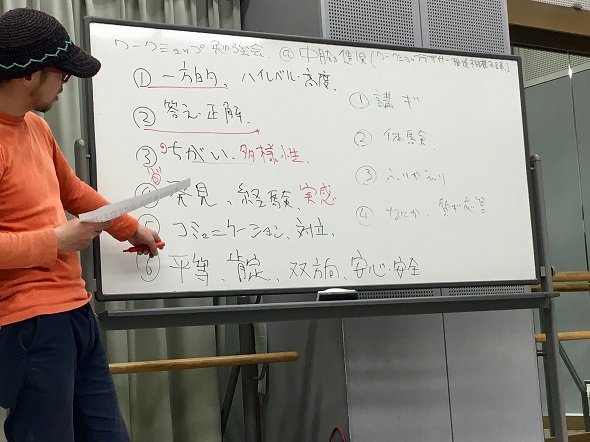 ワークショップ勉強会 @中脇健児(ワークショップデザイナー推進機構
① 一方的、ハイレベル・高度
② 答え・正解、
③ ちがい、多様性、
発見、経験、実感
コミュニケーション、対立、
⑥ 平等、肯定、双方向、安心・安全
① 講ギ
② 体験
③ ふりかえり
④ なにか、質ギ応答